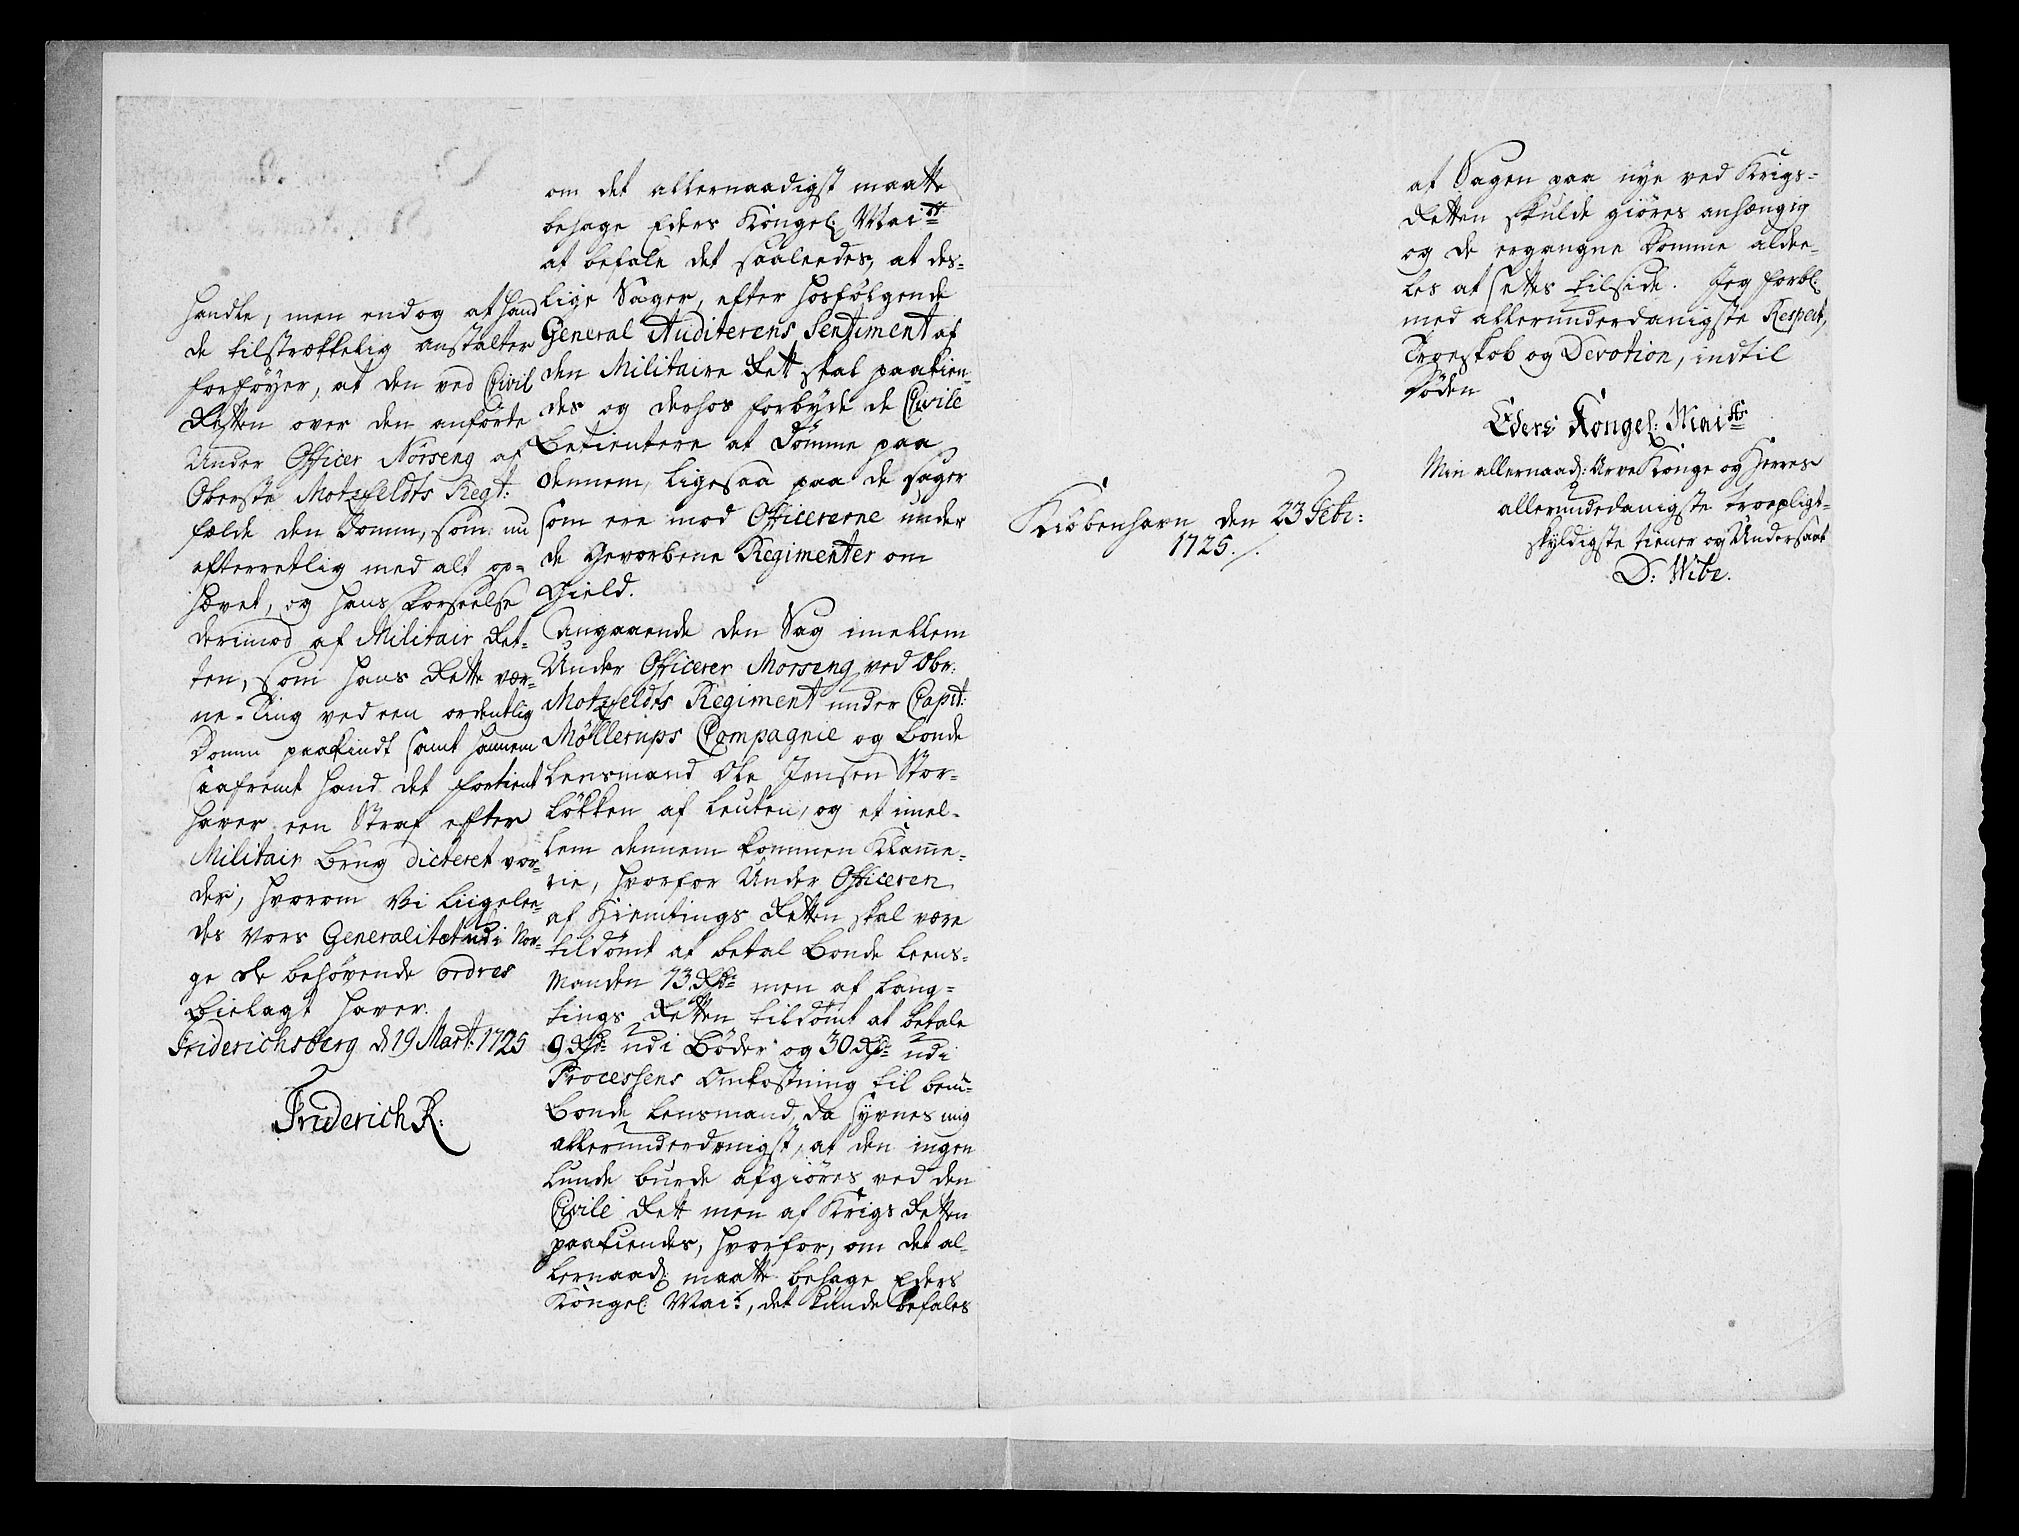 handle, men endog at hand
de tilstrækkelig anstalter
forføyer, at den ved Civil
Retten over den anførte
Under Officer Nörseng af
Oberste Motzfeldts Regt:
fælde den Domm, som nu
efterretlig med alt op=
hævet, og hans forseelse
derimod af Militair Ret-
ten, som hans Rette vær-
ne-Ting ved een ordentlig
Domm paakindt samt hannem
saafremt hand det fortient
haver een Straf efter
Militair brug dicteret vor-
der, hvorom Vi liigelee-
des Vores Generalitet udi Nor-
ge de behøvende ordres
bielagt haver.
Friderichsberg d 19 Mart: 1725
Friderich R:
om det allernaadigst maatte
behage Eders Kongel: Maitt
at befale det saaleedes, at des-
lige Sager, efter hosfølgende
General Auditeurens Sentiment af
den Militaire Rett skal paakien-
des og derhos forbyde de Civile
Betientere at Dømme paa
dennem, ligesaa paa de sager
som ere mod Officererne under
de Gevorbne Regimenter om
Gield.
Angaaende den Sag imellem
Under Officerer Morseng ved Obr:
Motzfeldts Regiment under Capit:
Möllerups Compagnie og Bonde
Lensmand Ole Jensen Stor-
løkken af Leuten, og et imel-
lem dennem kommen Klamme-
rie, hvorfor Under Officeren
af Hiemtings Retten skal være
tildømt at betal Bonde Leens-
manden 13 Rdr men af Laug-
tings Retten tildømt at betale
9 Rdr udi Bøder og 30 Rdr udi
Processens Omkostning til bem:
Bonde Lensmand, da synes mig
allerunderdanigst, at den ingen
lunde burde afgiøres ved den
Civile Rett men af Krigs Retten
paakiendes, hvorfor, om det al-
lernaad: maatte behage Eders
Kongel: Mait, det kunde befales
Kiöbenhavn den 23 Febr:
1725./.
at Sagen paa nye ved Krigs-
Retten skulde giøres anhængig
og de ergangne Domme aldee-
les at settes tilside. Jeg forbl:
med allerunderdanigste Respect,
Troeskab og Devotion, indtil
Døden
Eders Kongel: Maits
Min allernaad: Arve Konge og Herres
allerunderdanigste troepligt-
skyldigste tiener og Undersaat
D: Wibe.